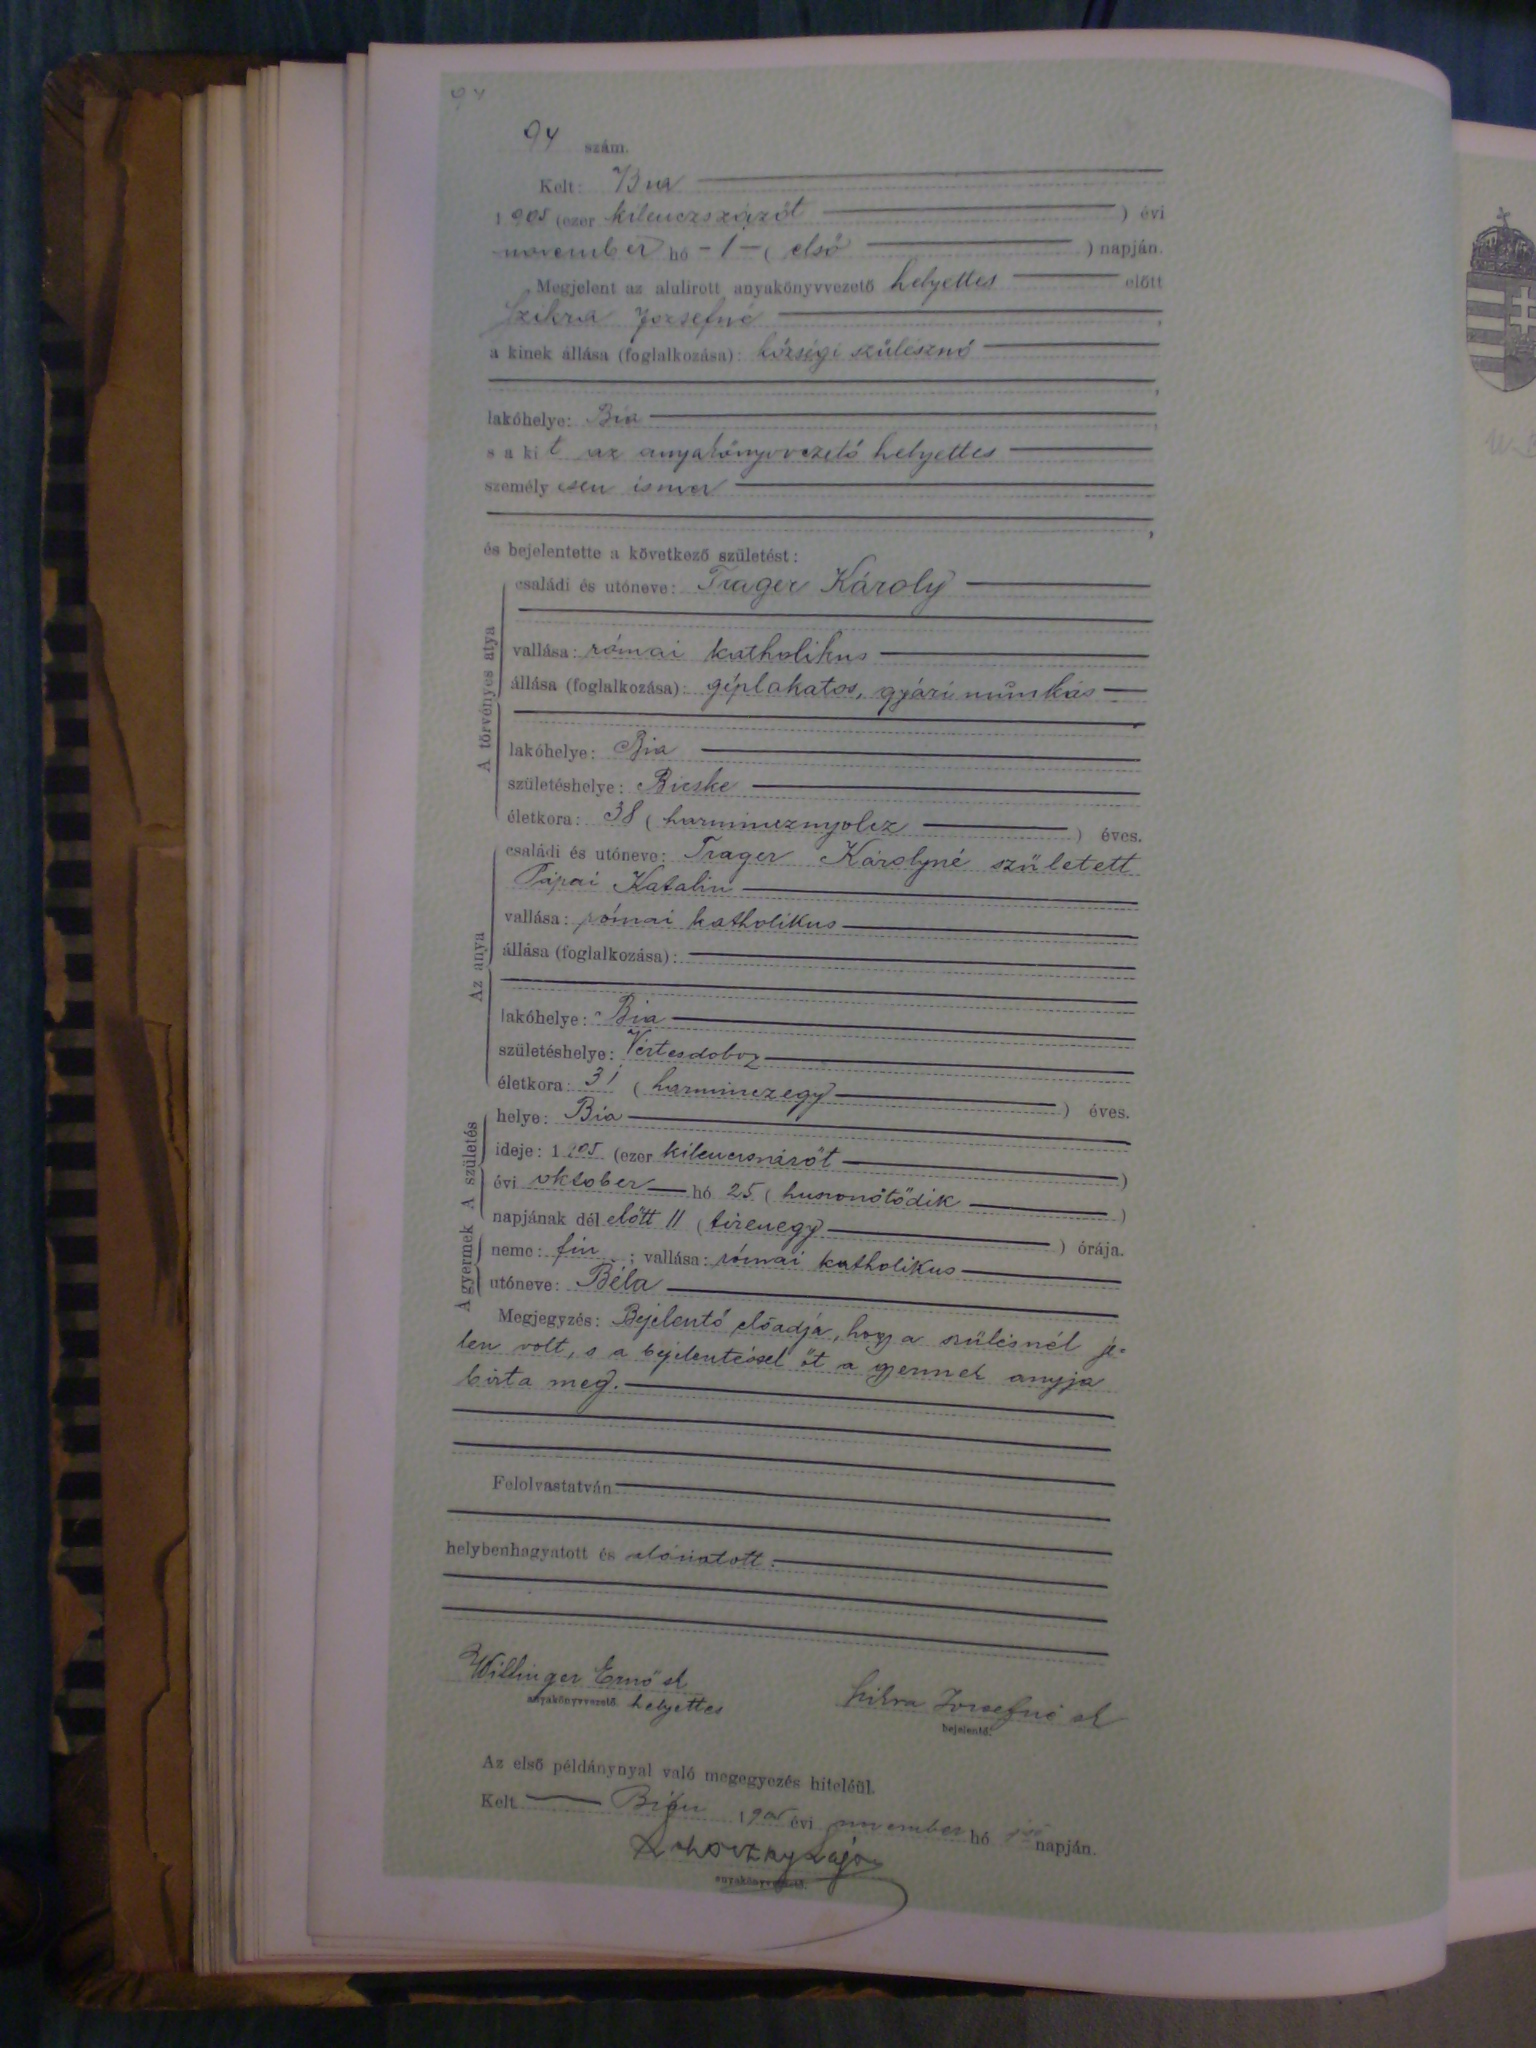 94
94 szám.
Kelt: Bia
1905 (ezer kilenczszázöt ) évi
november hó - 1 - ( első ) napján.
Megjelent az alulirott anyakönyvvezető helyettes előtt
Szikra Józsefné ,
a kinek állása (foglalkozása): községi szülésznő
,
lakóhelye: Bia ,
s a kit az anyakönyvvezető helyettes
személyesen ismer
,
és bejelentette a következő születést:
A törvényes atya
családi és utóneve: Trager Károly
vallása: római katholikus
állása (foglalkozása): géplakatos, gyári munkás
lakóhelye: Bia
születéshelye: Bicske
életkora: 38 ( harmincznyolcz ) éves.
Az anya
családi és utóneve: Trager Károlyné született
Pápai Katalin
vallása: római katholikus
állása (foglalkozása):
lakóhelye: Bia
születéshelye: Vértesdoboz
életkora: 31 ( harminczegy ) éves.
A születés
helye: Bia
ideje: 1905 (ezer kilenczszázöt )
évi október hó 25 ( huszonötödik )
napjának dél előtt 11 ( tizenegy ) órája.
A gyermek
neme: fiu ; vallása: római katholikus
utóneve: Béla
Megjegyzés: Bejelentő előadja, hogy a szülésnél je-
len volt, s a bejelentéssel őt a gyermek anyja
bízta meg.
Felolvastatván
helybenhagyatott és aláiratott.
Willinger Ernő sk
anyakönyvvezető helyettes
Szikra Józsefné sk
bejelentő.
Az első példánynyal való megegyezés hiteléül.
Kelt 1905 évi november hó napján.
anyakönyvvezető.